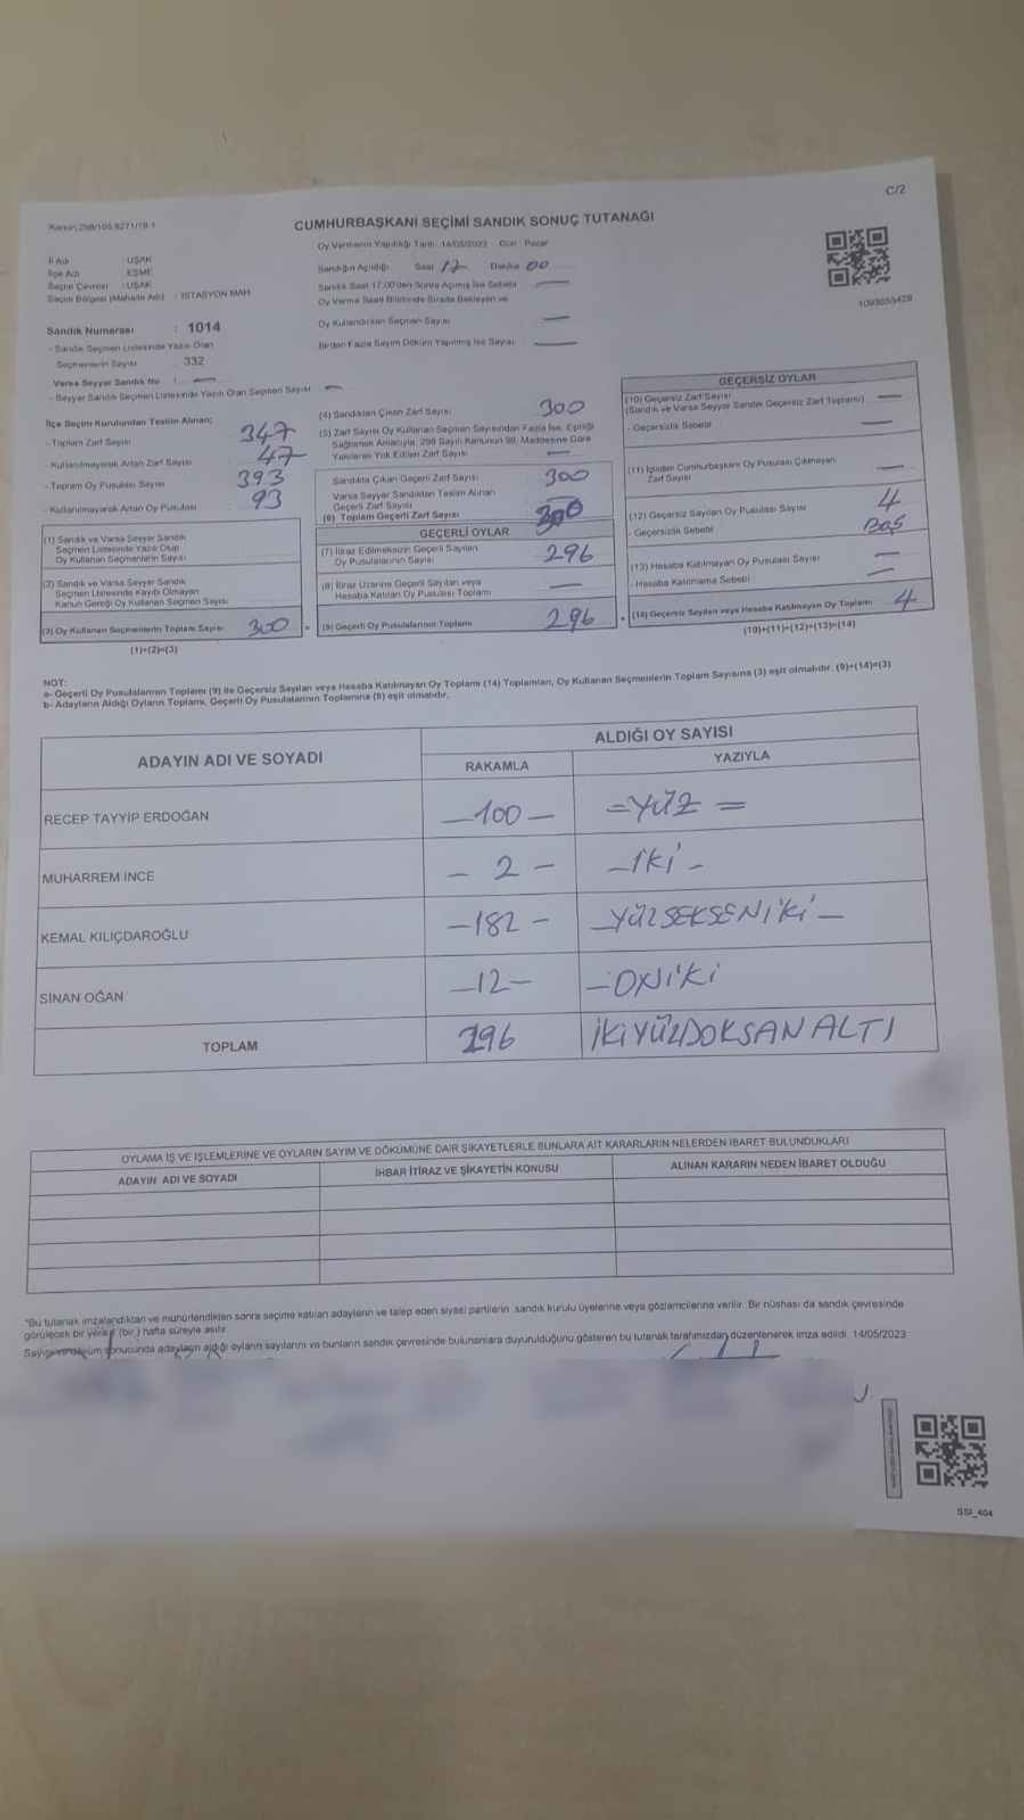 C/2
CUMHURBAŞKANI SEÇİMİ SANDIK SONUÇ TUTANAĞI
Oy Vermenin Yapıldığı Tarih: 14/05/2023 Gün: Pazar
İl Adı : UŞAK
İlçe Adı : EŞME
Seçim Çevresi : UŞAK
Seçim Bölgesi (Mahalle Adı) : İSTASYON MAH
Sandığın Açıldığı Saat 17 Dakika 00
Sandık Saat 17.00'den Sonra Açılmış İse Sebebi —
Oy Verme Saati Bitiminde Sırada Bekleyen ve
Oy Kullandırılan Seçmen Sayısı —
Birden Fazla Sayım Döküm Yapılmış İse Sayısı —
Sandık Numarası : 1014
- Sandık Seçmen Listesinde Yazılı Olan
Seçmenlerin Sayısı : 332
Varsa Seyyar Sandık No : —
- Seyyar Sandık Seçmen Listesinde Yazılı Olan Seçmen Sayısı —
İlçe Seçim Kurulundan Teslim Alınan;
- Toplam Zarf Sayısı 347
- Kullanılmayarak Artan Zarf Sayısı 47
- Toplam Oy Pusulası Sayısı 393
- Kullanılmayarak Artan Oy Pusulası 93
(1) Sandık ve Varsa Seyyar Sandık
Seçmen Listesinde Yazılı Olup
Oy Kullanan Seçmenlerin Sayısı
(2) Sandık ve Varsa Seyyar Sandık
Seçmen Listesinde Kaydı Olmayan
Kanun Gereği Oy Kullanan Seçmen Sayısı
(3) Oy Kullanan Seçmenlerin Toplam Sayısı 300
(1)+(2)=(3)
(4) Sandıktan Çıkan Zarf Sayısı 300
(5) Zarf Sayısı Oy Kullanan Seçmen Sayısından Fazla İse, Eşitliği
Sağlamak Amacıyla, 298 Sayılı Kanunun 98. Maddesine Göre
Yakılarak Yok Edilen Zarf Sayısı —
Sandıkta Çıkan Geçerli Zarf Sayısı 300
Varsa Seyyar Sandıktan Teslim Alınan
Geçerli Zarf Sayısı —
(6) Toplam Geçerli Zarf Sayısı 300
GEÇERLİ OYLAR
(7) İtiraz Edilmeksizin Geçerli Sayılan
Oy Pusulalarının Sayısı 296
(8) İtiraz Üzerine Geçerli Sayılan veya
Hesaba Katılan Oy Pusulası Toplamı —
(9) Geçerli Oy Pusulalarının Toplamı 296
GEÇERSİZ OYLAR
(10) Geçersiz Zarf Sayısı —
(Sandık ve Varsa Seyyar Sandık Geçersiz Zarf Toplamı)
- Geçersizlik Sebebi —
(11) İçinden Cumhurbaşkanı Oy Pusulası Çıkmayan
Zarf Sayısı —
(12) Geçersiz Sayılan Oy Pusulası Sayısı 4
- Geçersizlik Sebebi BOŞ
(13) Hesaba Katılmayan Oy Pusulası Sayısı —
- Hesaba Katılmama Sebebi —
(14) Geçersiz Sayılan veya Hesaba Katılmayan Oy Toplamı 4
(10)+(11)+(12)+(13)=(14)
NOT:
a- Geçerli Oy Pusulalarının Toplamı (9) ile Geçersiz Sayılan veya Hesaba Katılmayan Oy Toplamı (14) Toplamları, Oy Kullanan Seçmenlerin Toplam Sayısına (3) eşit olmalıdır. (9)+(14)=(3)
b- Adayların Aldığı Oyların Toplamı, Geçerli Oy Pusulalarının Toplamına (9) eşit olmalıdır.
ADAYIN ADI VE SOYADI ALDIĞI OY SAYISI
RAKAMLA YAZIYLA
RECEP TAYYİP ERDOĞAN —100— =YÜZ=
MUHARREM İNCE — 2 — —İKİ—
KEMAL KILIÇDAROĞLU —182— —YÜZSEKSENİKİ—
SİNAN OĞAN —12— —ONİKİ
TOPLAM 296 İKİYÜZDOKSANALTI
OYLAMA İŞ VE İŞLEMLERİNE VE OYLARIN SAYIM VE DÖKÜMÜNE DAİR ŞİKAYETLERLE BUNLARA AİT KARARLARIN NELERDEN İBARET BULUNDUKLARI
ADAYIN ADI VE SOYADI İHBAR İTİRAZ VE ŞİKAYETİN KONUSU ALINAN KARARIN NEDEN İBARET OLDUĞU
*Bu tutanak imzalandıktan ve mühürlendikten sonra seçime katılan adayların ve talep eden siyasi partilerin sandık kurulu üyelerine veya gözlemcilerine verilir. Bir nüshası da sandık çevresinde
görülecek bir yere (bir) hafta süreyle asılır.
Sayım ve döküm sonucunda adayların aldığı oyların sayılarını ve bunların sandık çevresinde bulunanlara duyurulduğunu gösteren bu tutanak tarafımızdan düzenlenerek imza edildi. 14/05/2023